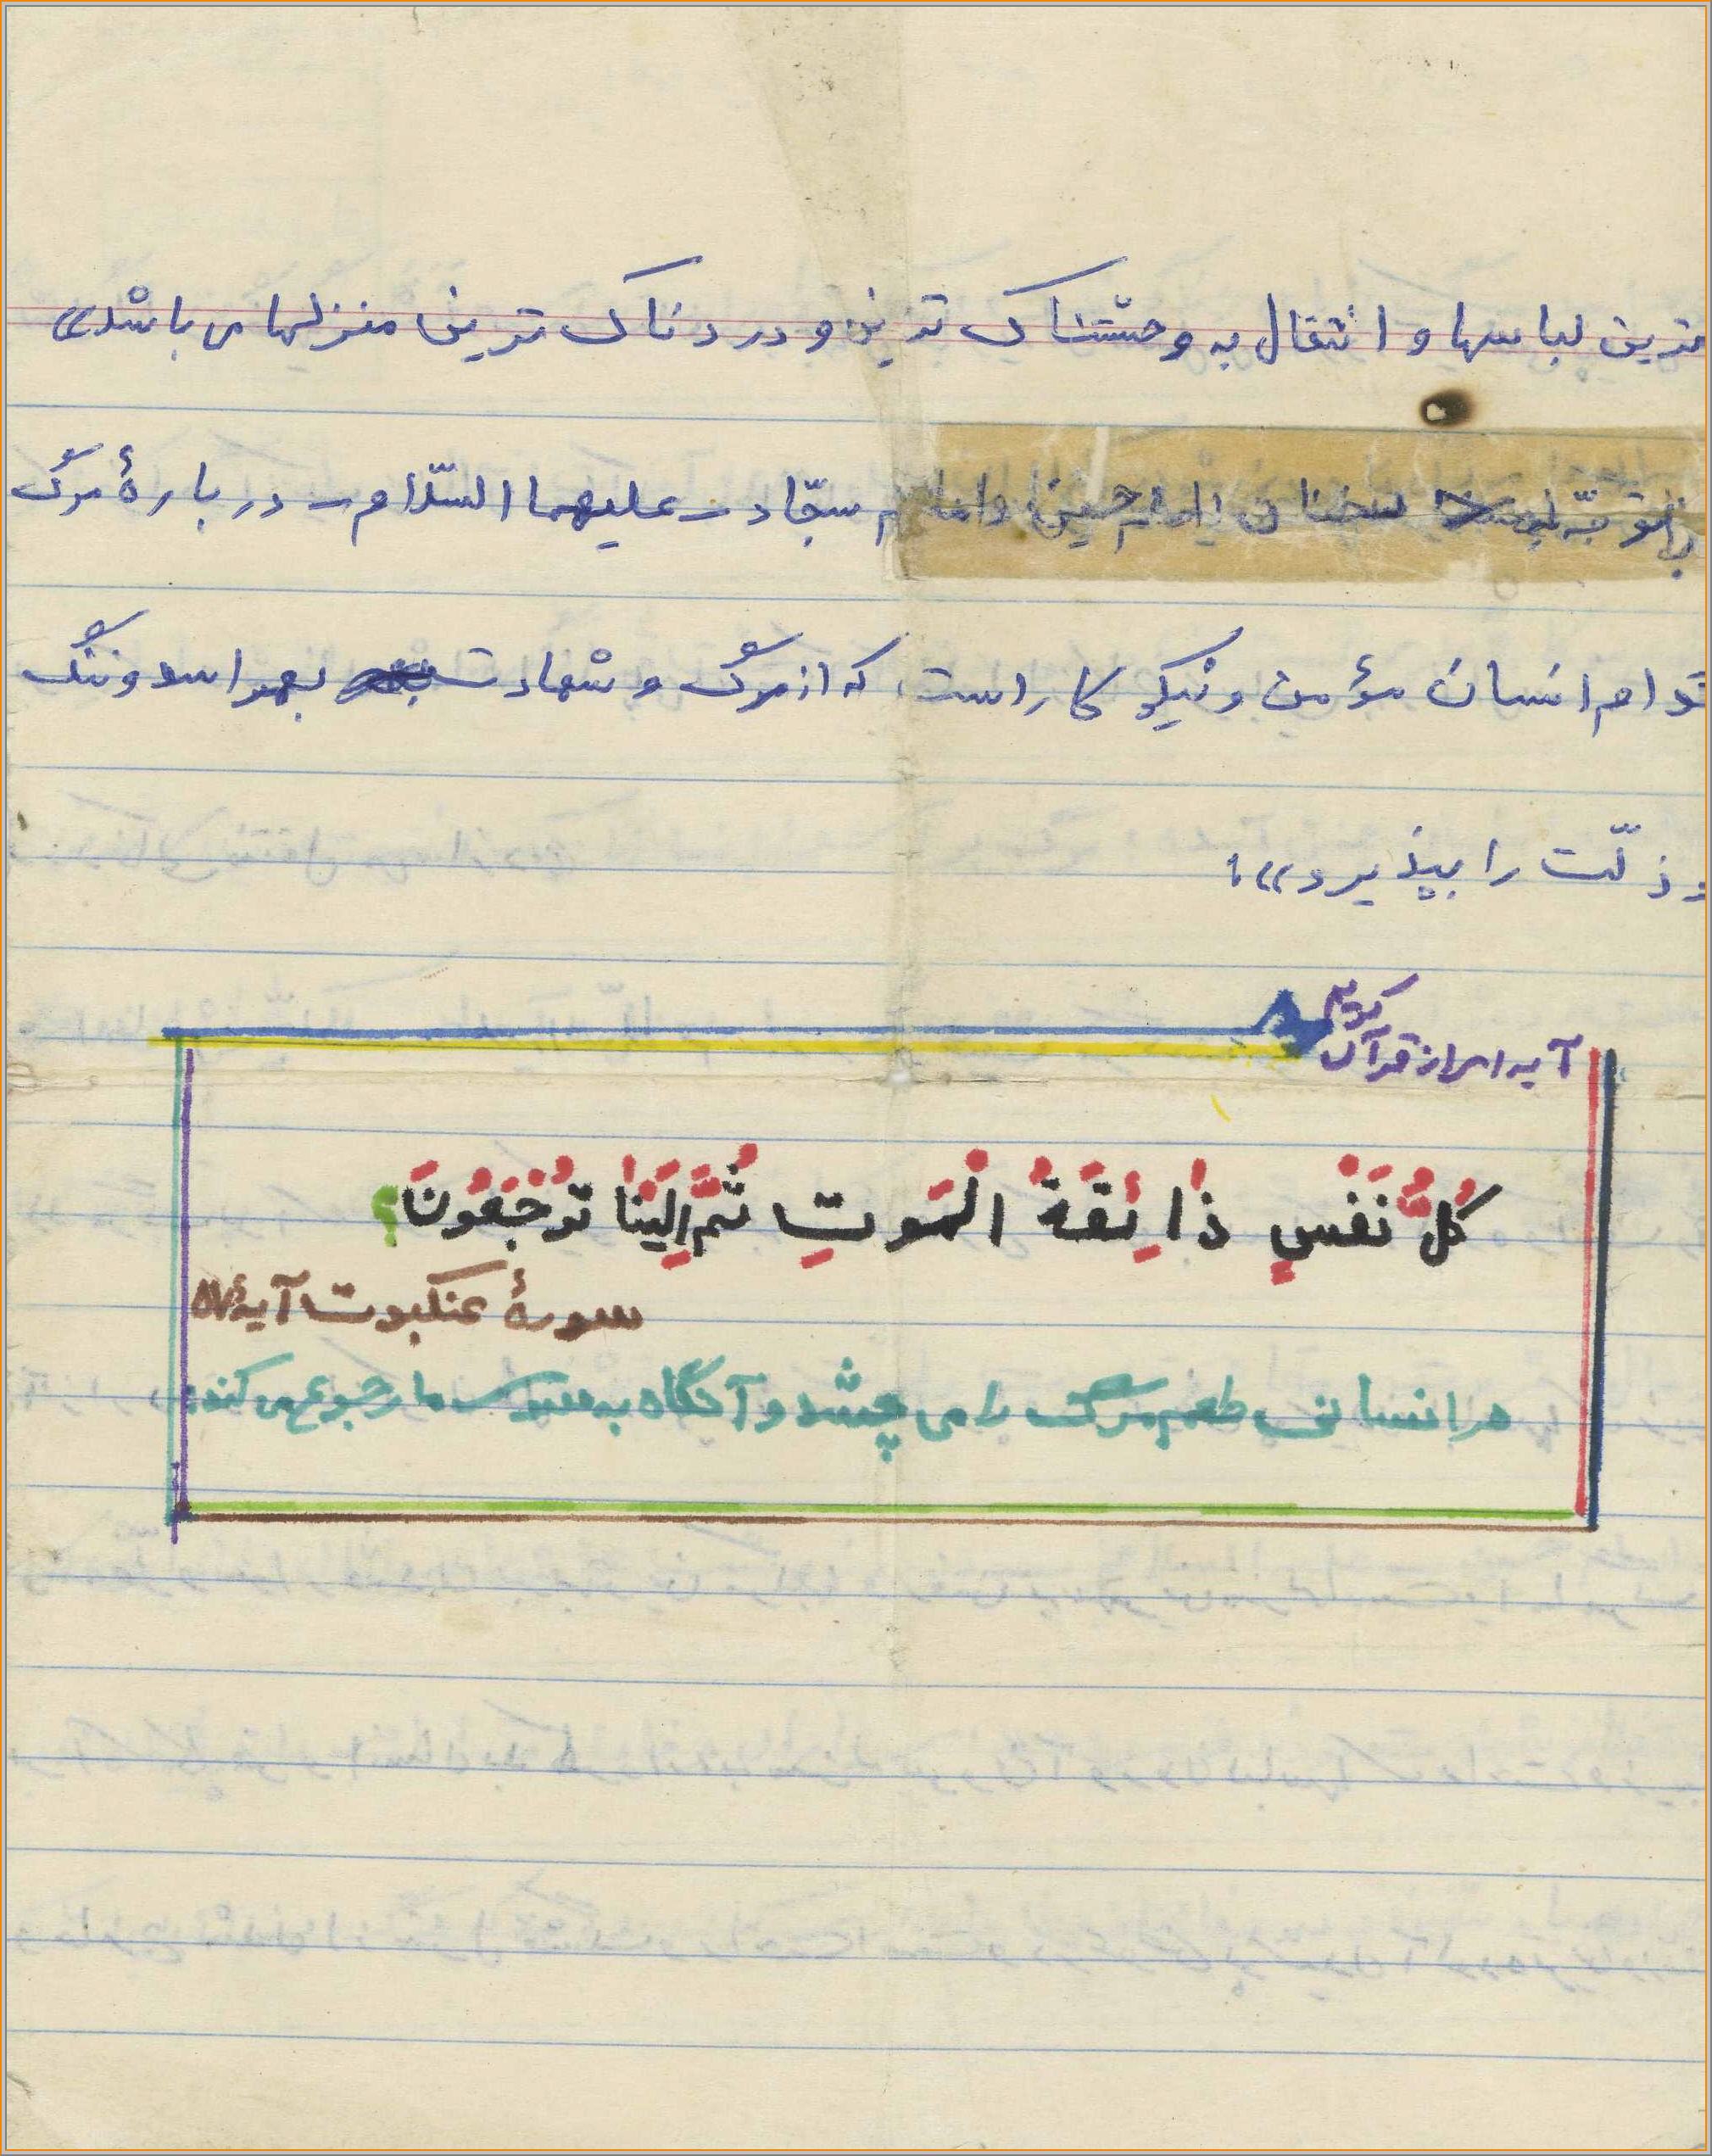 ترین لباسها و انتقال به وحشتناک ترین و دردناک ترین منزلها می باشد»
با توجّه به سخنان امام حسین و امام سجّاد – علیهما السّلام – دربارهٔ مرگ
کدام انسان مؤمن و نیکوکار است، که از مرگ و شهادت بهراسد و ننگ
و ذلّت را بپذیرد»؛
آیه ای از قرآن کریم
کُلُّ نَفْسٍ ذٰائِقَةُ الْمَوتِ ثُمَّ اِلَیْنٰا تُرْجَعُونَ؟
سورهٔ عنکبوت آیهٔ ۵۷
هر انسانی طعم مرگ را می چشد و آنگاه به سوی ما رجوع می کند: